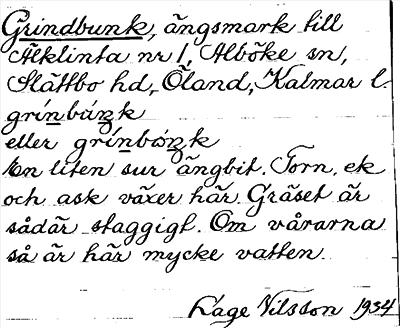 Grindbunk, ängsmark till
Älklinta nr 1, Alböke sn,
Slättbo hd, Öland, Kalmar l.
grínbùŋk
eller grínbòŋk
En liten sur ängbit. Torn, ek
och ask växer här. Gräset är
sådär staggigt. Om vårarna
så är här mycke vatten.
Åage Nilsson 1954